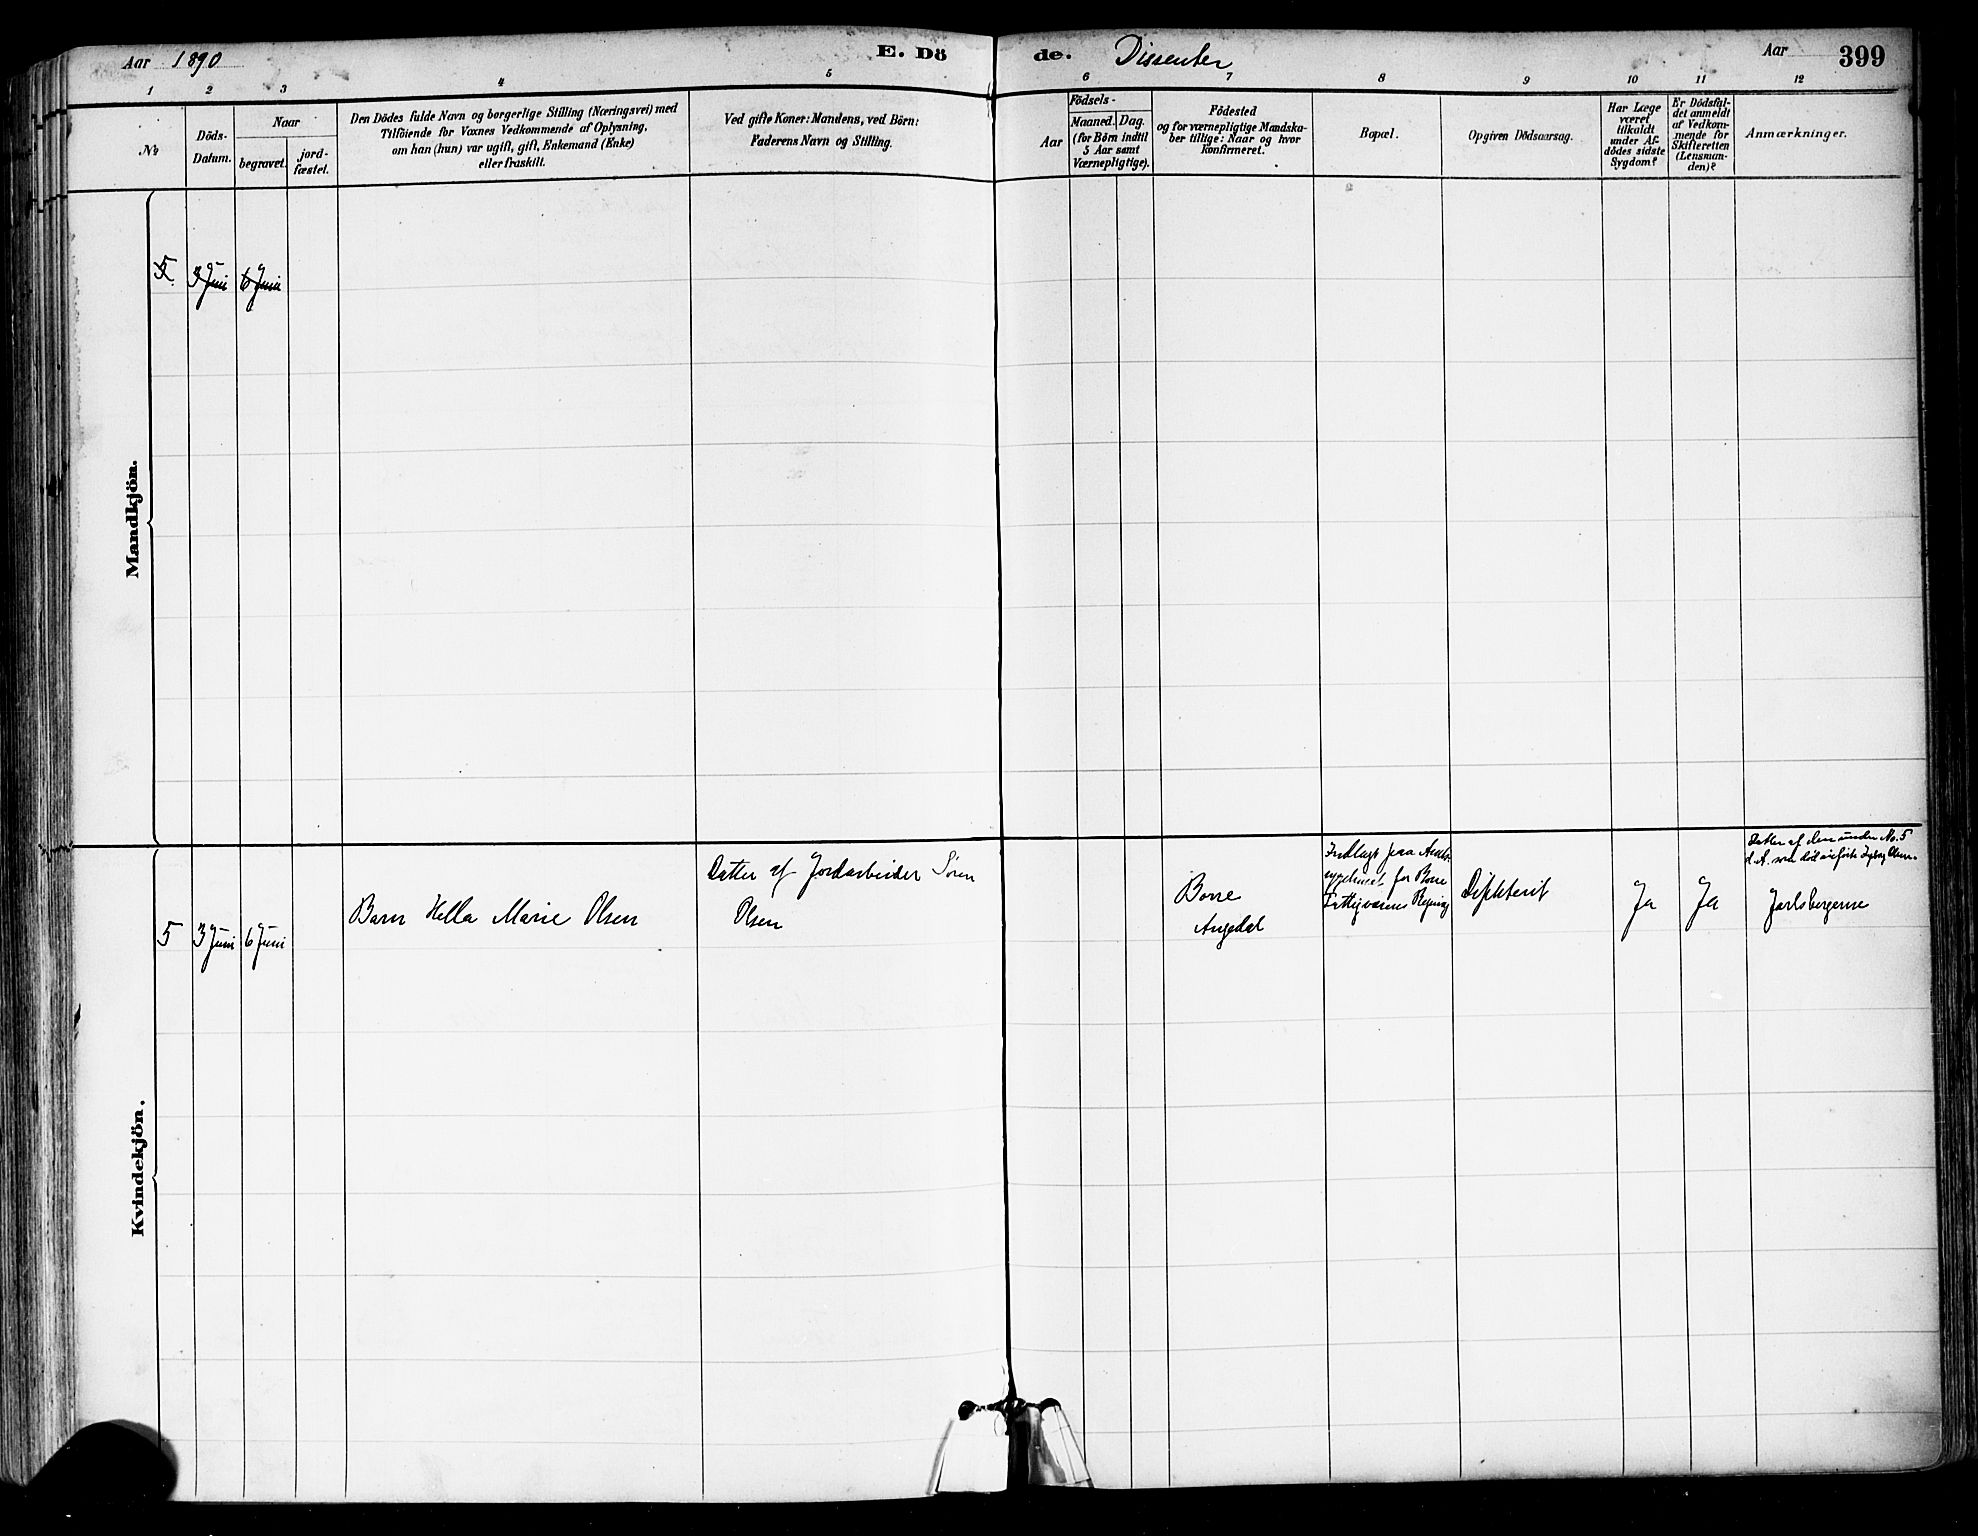 Aar 1890
E. Dö
de.
Dissenter
Aar
399
1 2 3 4 5 6 7 8 9 10 11 12
No
Döds-
Datum.
Naar
begravet.
jord-
fæstet.
Den Dödes fulde Navn og borgerlige Stilling (Næringsvei) med
Tilföiende for Voxnes Vedkommende af Oplysning,
om han (hun) var ugift, gift, Enkemand (Enke)
eller fraskilt.
Ved gifte Koner: Mandens, ved Börn:
Faderens Navn og Stilling.
Födsels-
Aar
Maaned. Dag.
(for Börn indtil
5 Aar samt
Værnepligtige).
Födested
og for værnepligtige Mandska-
ber tillige: Naar og hvor
konfirmeret.
Bopæl.
Opgiven Dödsaarsag.
Har Læge
været
tilkaldt
under Af-
dödes sidste
Sygdom?
Er Dödsfal-
det anmeldt
af Vedkom-
mende for
Skifteretten
(Lensman-
den)?
Anmærkninger.
Mandkjön.
5
3 Juni
6 Juni
Kvindekjön.
5
3 Juni
6 Juni
Barn Hella Marie Olsen
Datter af Jordarbeider Sören
Olsen
Borre
Indlagt paa
for Borre
Difhterit
Ja
Ja
Datter af den under No. 5
Jarlsbergerne